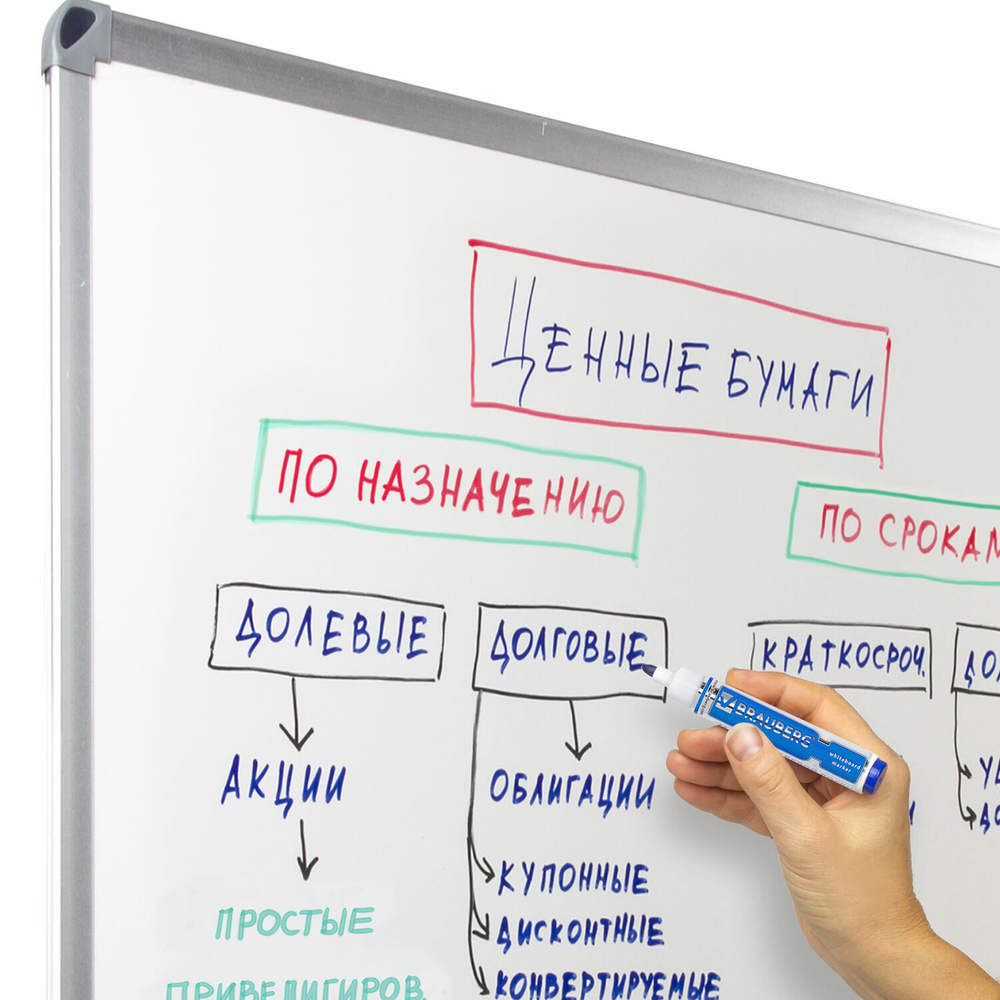 Ценные бумаги
ПО НАЗНАЧЕНИЮ
ПО СРОКАМ
ДОЛЕВЫЕ
ДОЛГОВЫЕ
КРАТКОСРОЧ.
BRAUBERG
whiteboard
marker
АКЦИИ
ОБЛИГАЦИИ
ПРОСТЫЕ
КУПОННЫЕ
ДИСКОНТНЫЕ
ПРИВЕЛИГИРОВ.
КОНВЕРТИРУЕМЫЕ